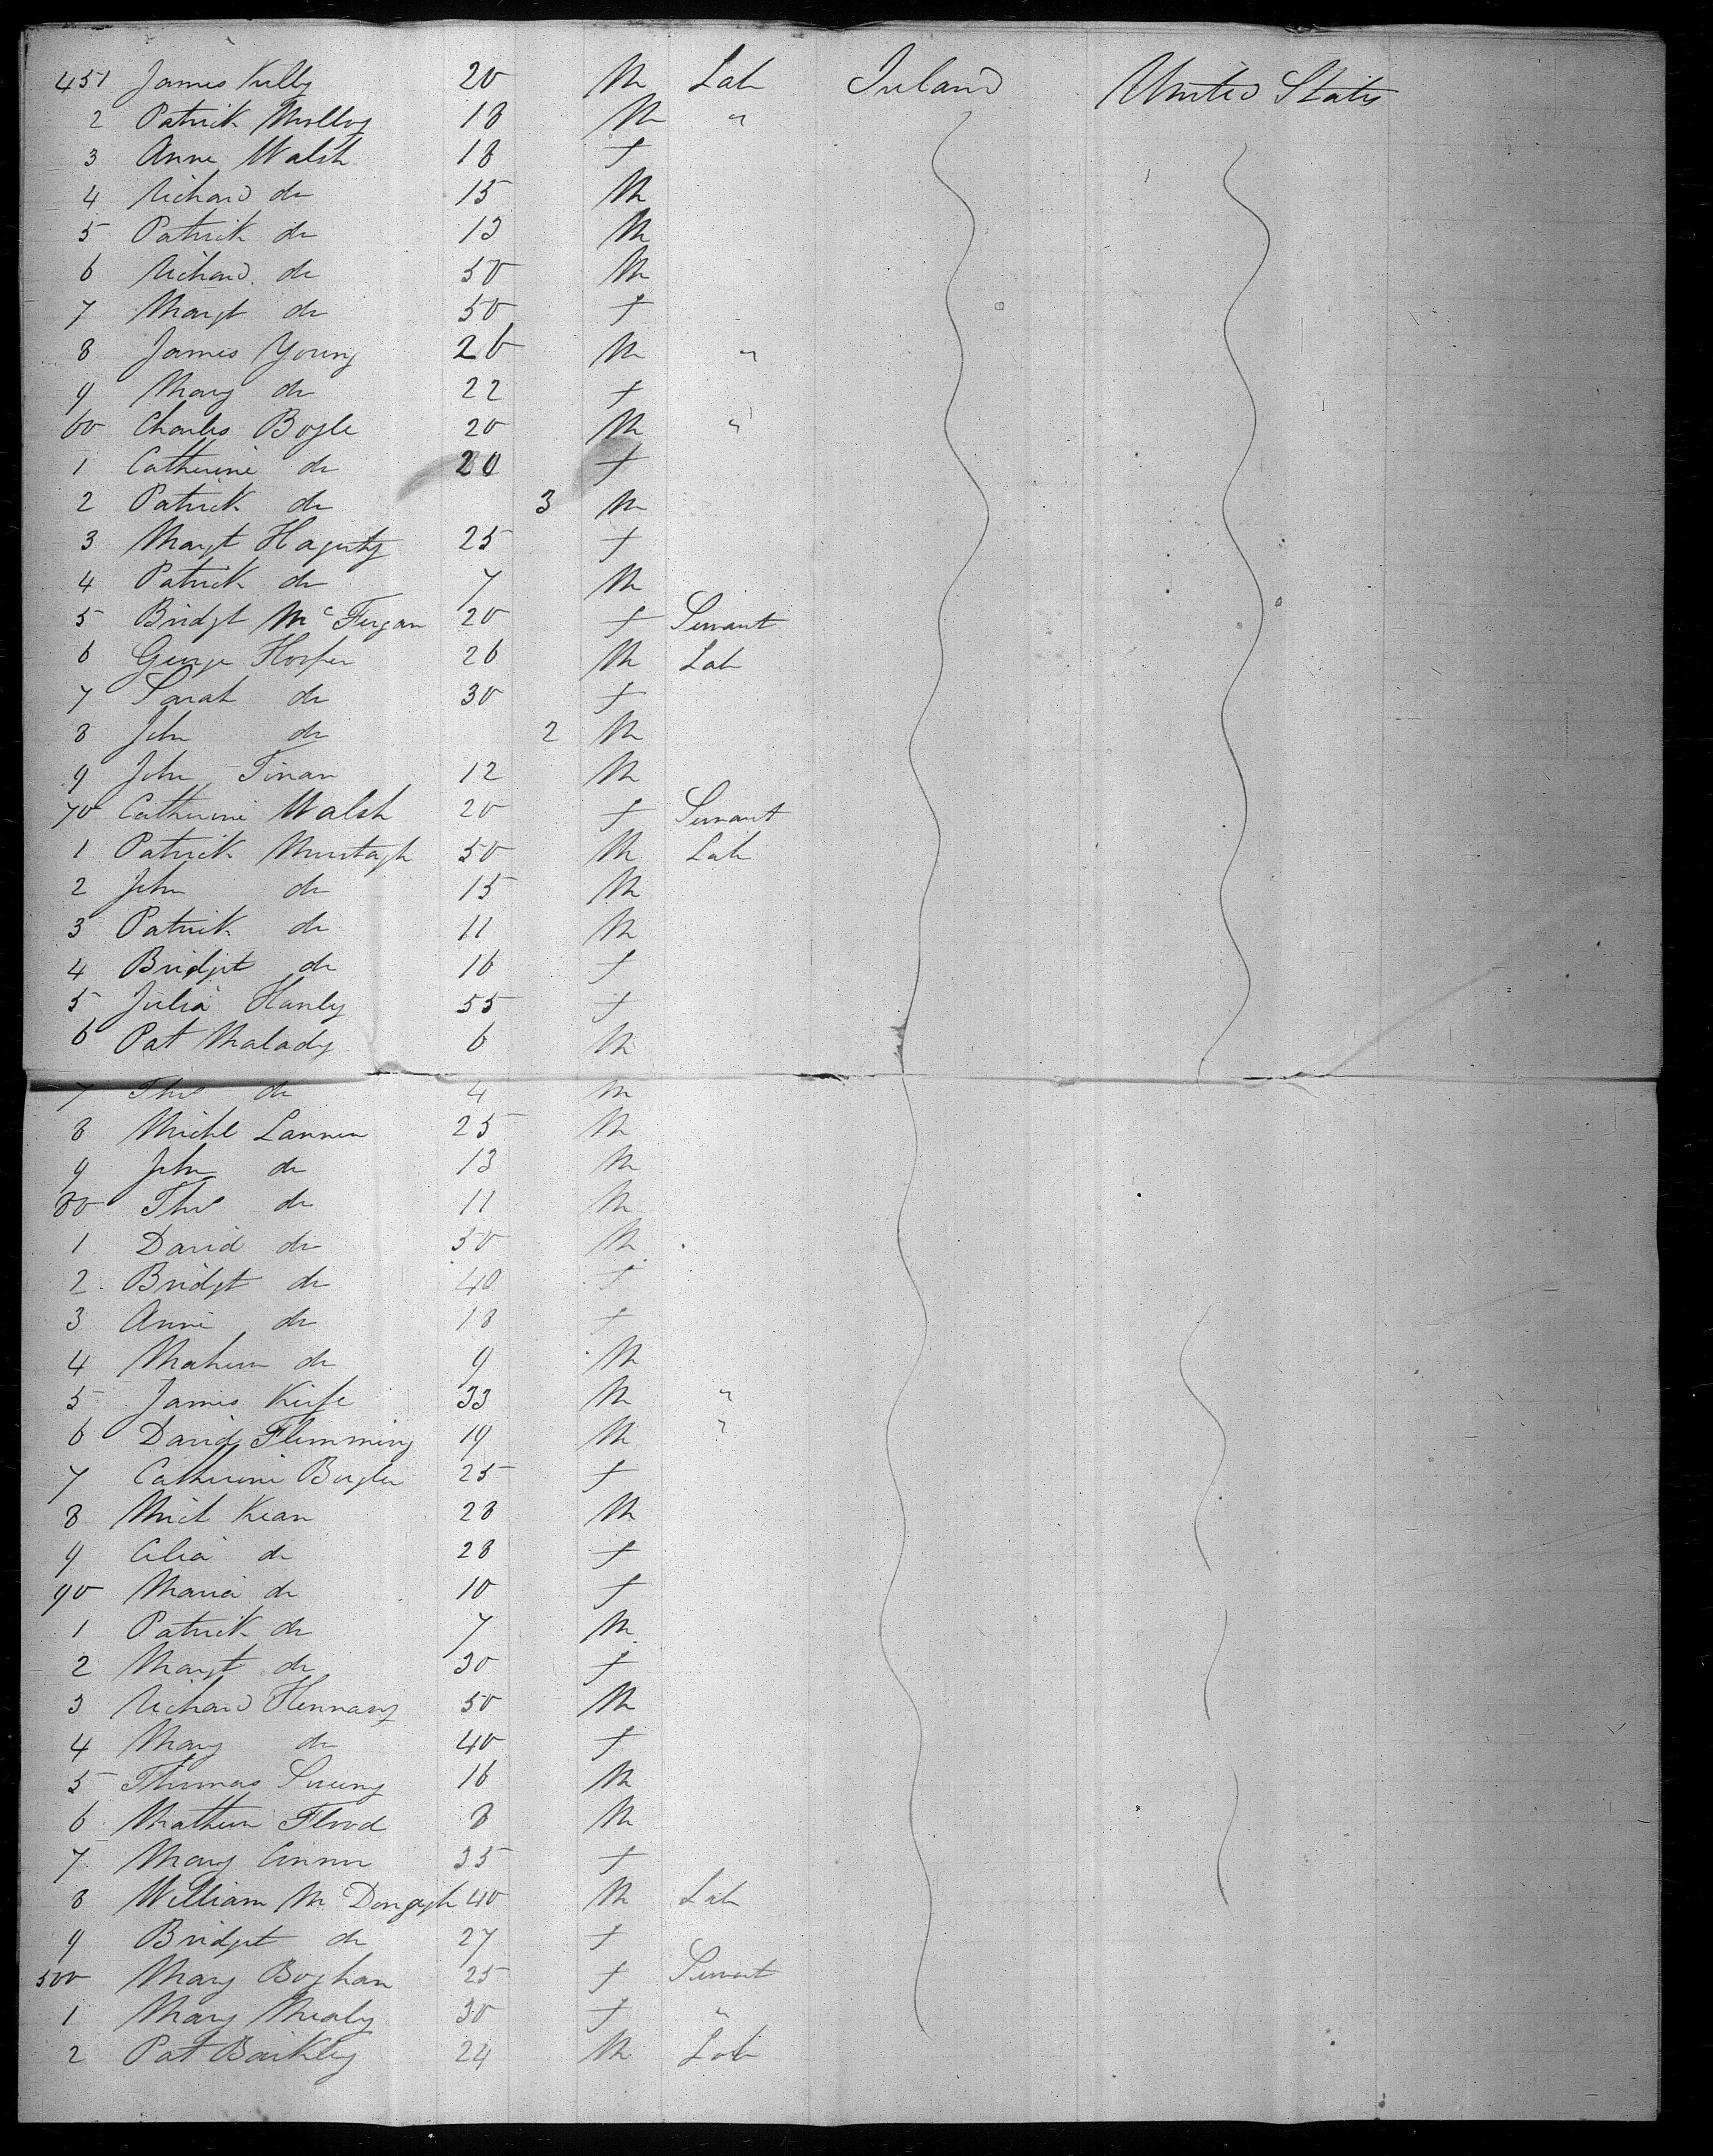 451 James Kelly 20 M Lab Ireland United States
2 Patrick Molloy 18 M "
3 Anne Walsh 18 f
4 Richard do 15 M
5 Patrick do 13 M
6 Richard do 50 M
7 Margt do 50 f
8 James Young 26 M "
9 Mary do 22 f
60 Charles Bogle 20 M "
1 Catherine do 20 f
2 Patrick do 3 M
3 Margt Hagerty 25 f
4 Patrick do 7 M
5 Bridgt Mc Fergan 20 f Servant
6 George Hosper 26 M Lab
7 Sarah do 30 f
8 John do 2 M
9 John Tinan 12 M
70 Catherine Walsh 20 f Servant
1 Patrick Murtagh 50 M Lab
2 John do 15 M
3 Patrick do 11 M
4 Bridget do 16 f
5 Julia Hanly 55 f
6 Pat Malady 6 M
7 Thos do 4 M
8 Michl Lannen 25 M
9 John do 13 M
80 Thos do 11 M
1 David do 50 M
2 Bridgt do 40 f
3 Anne do 18 f
4 Mathew do 9 M
5 James Keife 33 M "
6 David Flemming 19 M "
7 Catherine Bogler 25 f
8 Mich Kean 28 M
9 Celia do 28 f
90 Maria do 10 f
1 Patrick do 7 M
2 Margt do 30 f
3 Richard Hennasy 50 M
4 Mary do 40 f
5 Thomas Sweeny 16 M
6 Mathew Flood 8 M
7 Mary Connor 35 f
8 William Mc Donagh 40 M Lab
9 Bridget do 27 f
500 Mary Boghan 25 f Servant
1 Mary Mealy 30 f "
2 Pat Barkley 24 M Lab